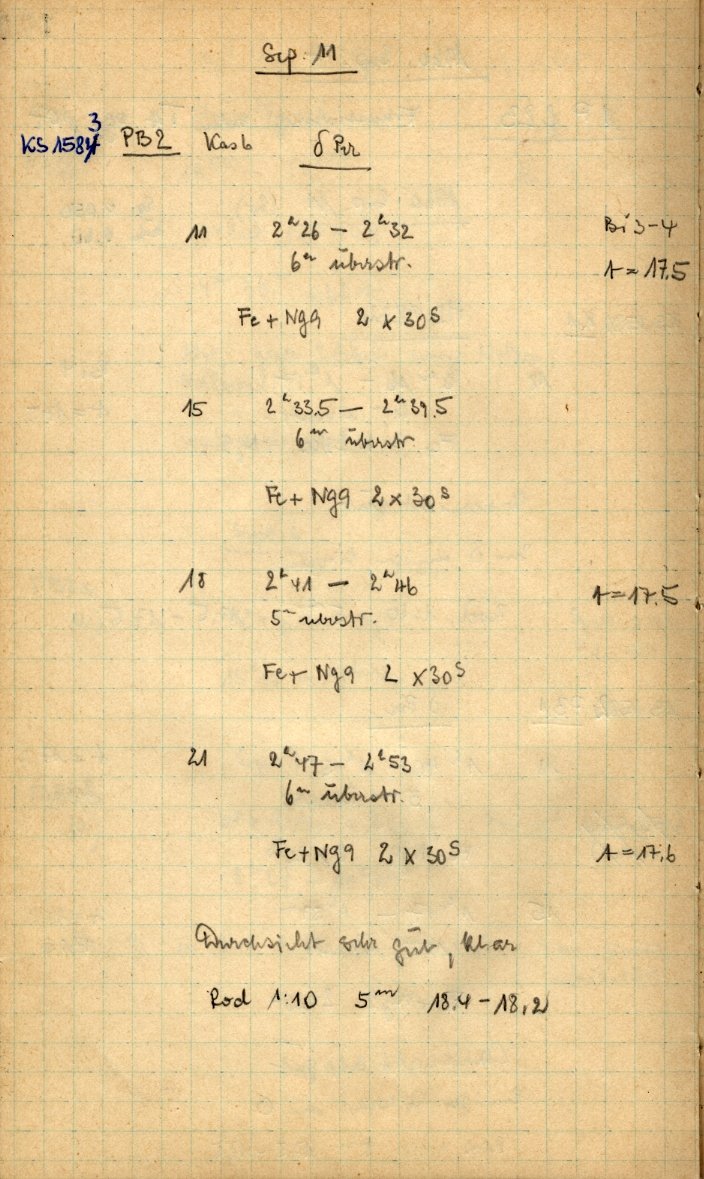 Sep. 11
KS 1583 PB2 Kas6 δ Per
11 2h26 — 2h32 Bi 3-4
6m überstr. A = 17.5
Fe + Ng9 2 x 30s
15 2h33.5 — 2h39.5
6m überstr.
Fe + Ng9 2 x 30s
18 2h41 — 2h46 A = 17.5
5m überstr.
Fe + Ng9 2 x 30s
21 2h47 — 2h53
6m überstr.
Fe + Ng9 2 x 30s A = 17.6
Durchsicht sehr gut, klar
Rod 1:10 5m 18.4 - 18.2